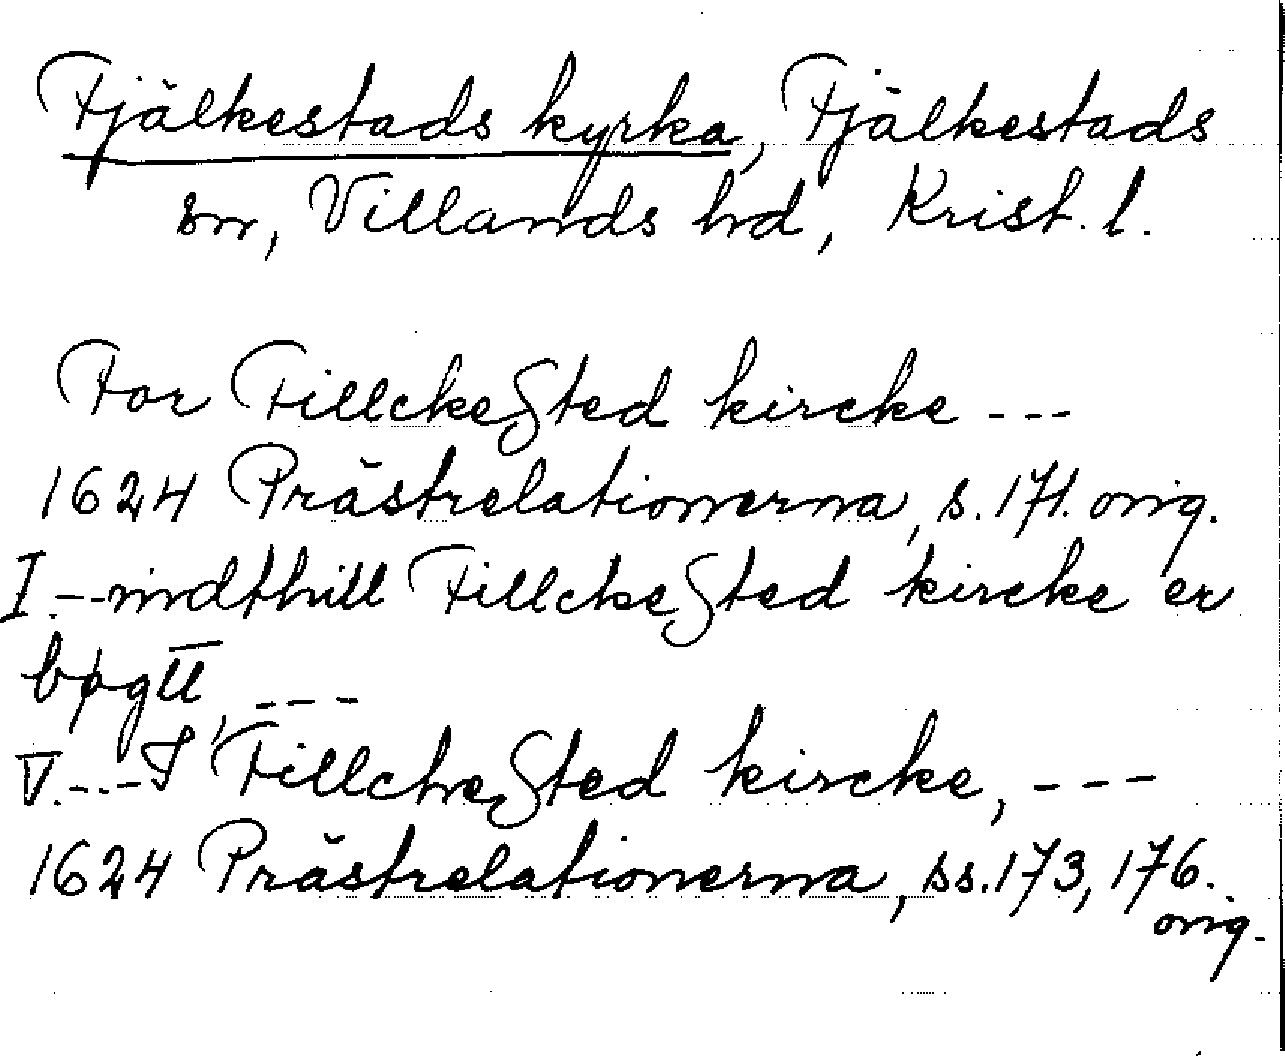 Fjälkestads kyrka, Fjälkestads
sn, Villands hd, Krist. l.
For FillckeSted kircke ---
1624 Prästrelationerna, s. 171. orig.
I.--indthill FillckeSted kircke er
bøgtt, ---
V.---I FillckeSted kircke, ---
1624 Prästrelationerna, ss. 173, 176.
orig.